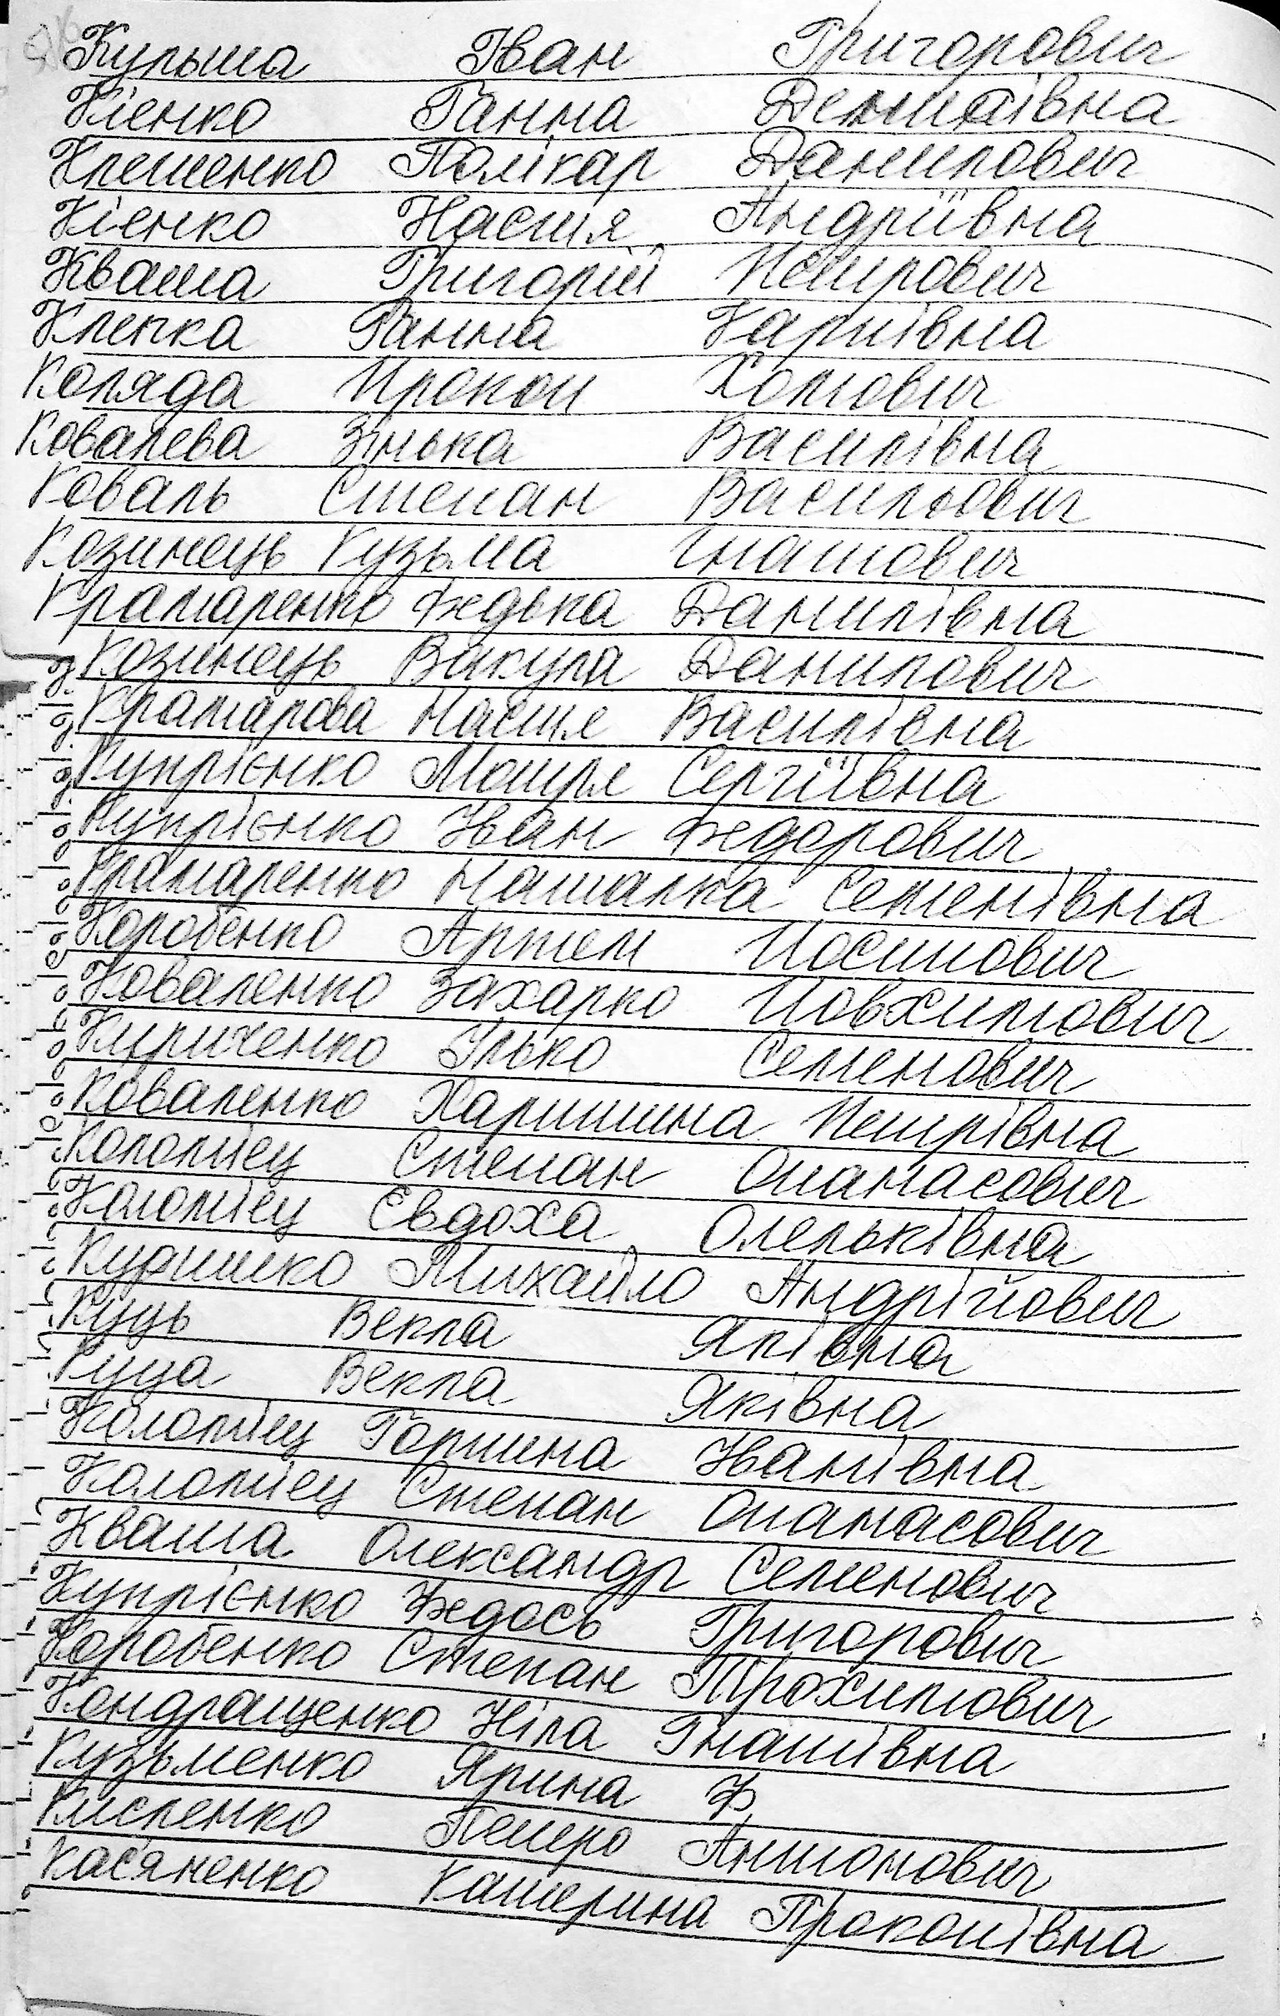 Курыша Іван Григорович
Кіенко Ганна Демидівна
Клеменко Полікар Данилович
Кіенко Настя Андріївна
Кваша Григорій Петрович
Клепка Ганна Карпівна
Коляда Прокоп Хомович
Ковалева Зінька Василівна
Коваль Степан Васильович
Козинець Кузьма Гнатович
Крамаренко Федька Данилівна
Козинець Вакула Данилович
Крамарова Настя Василівна
Купрієнко Мотря Сергіївна
Купрієнко Іван Федорович
Крамаренко Наталка Семенівна
Коробенко Артем Йосипович
Коваленко Захарко Йовхимович
Кириченко Ілько Семенович
Коваленко Харитина Петрівна
Коломієц Степан Опанасович
Коломієц Євдоха Олельківна
Куришко Михайло Андрійович
Куць Векла Яківна
Куца Векла Яківна
Коломієц Горпина Іванівна
Коломієц Степан Опанасович
Кваша Олександр Семенович
Купрієнко Федось Григорович
Коробенко Степан Трохимович
Кондращенко Ніла Гнатівна
Кузьменко Ярина Ф
Кисленко Петро Антонович
Касяненко Катерина Прокопівна